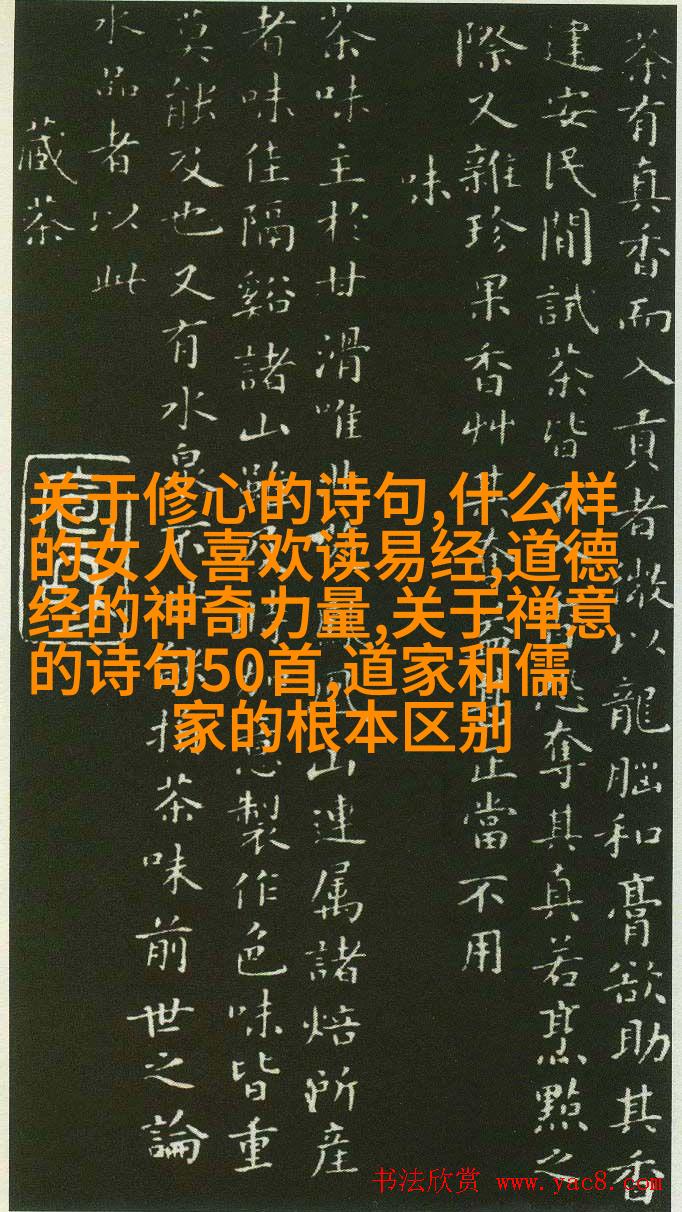 茶有真香而入貢者微以龍腦和膏欲助其香
建安民間試茶皆不入香恐奪其真若烹點之
際又雜珍果香艸其奪益甚正當不用
味
茶味主於甘滑唯北苑鳳凰山連属諸焙所産
者味佳隔谿諸山雖及時加意製作色味皆重
莫能及也又有水泉不甘能損茶味前世之論
水品者以此
藏茶
关于修心的诗句,什么样
的女人喜欢读易经,道德
经的神奇力量,关于禅意
的诗句50首,道家和儒
家的根本区别
书法欣赏 www.yac8.com